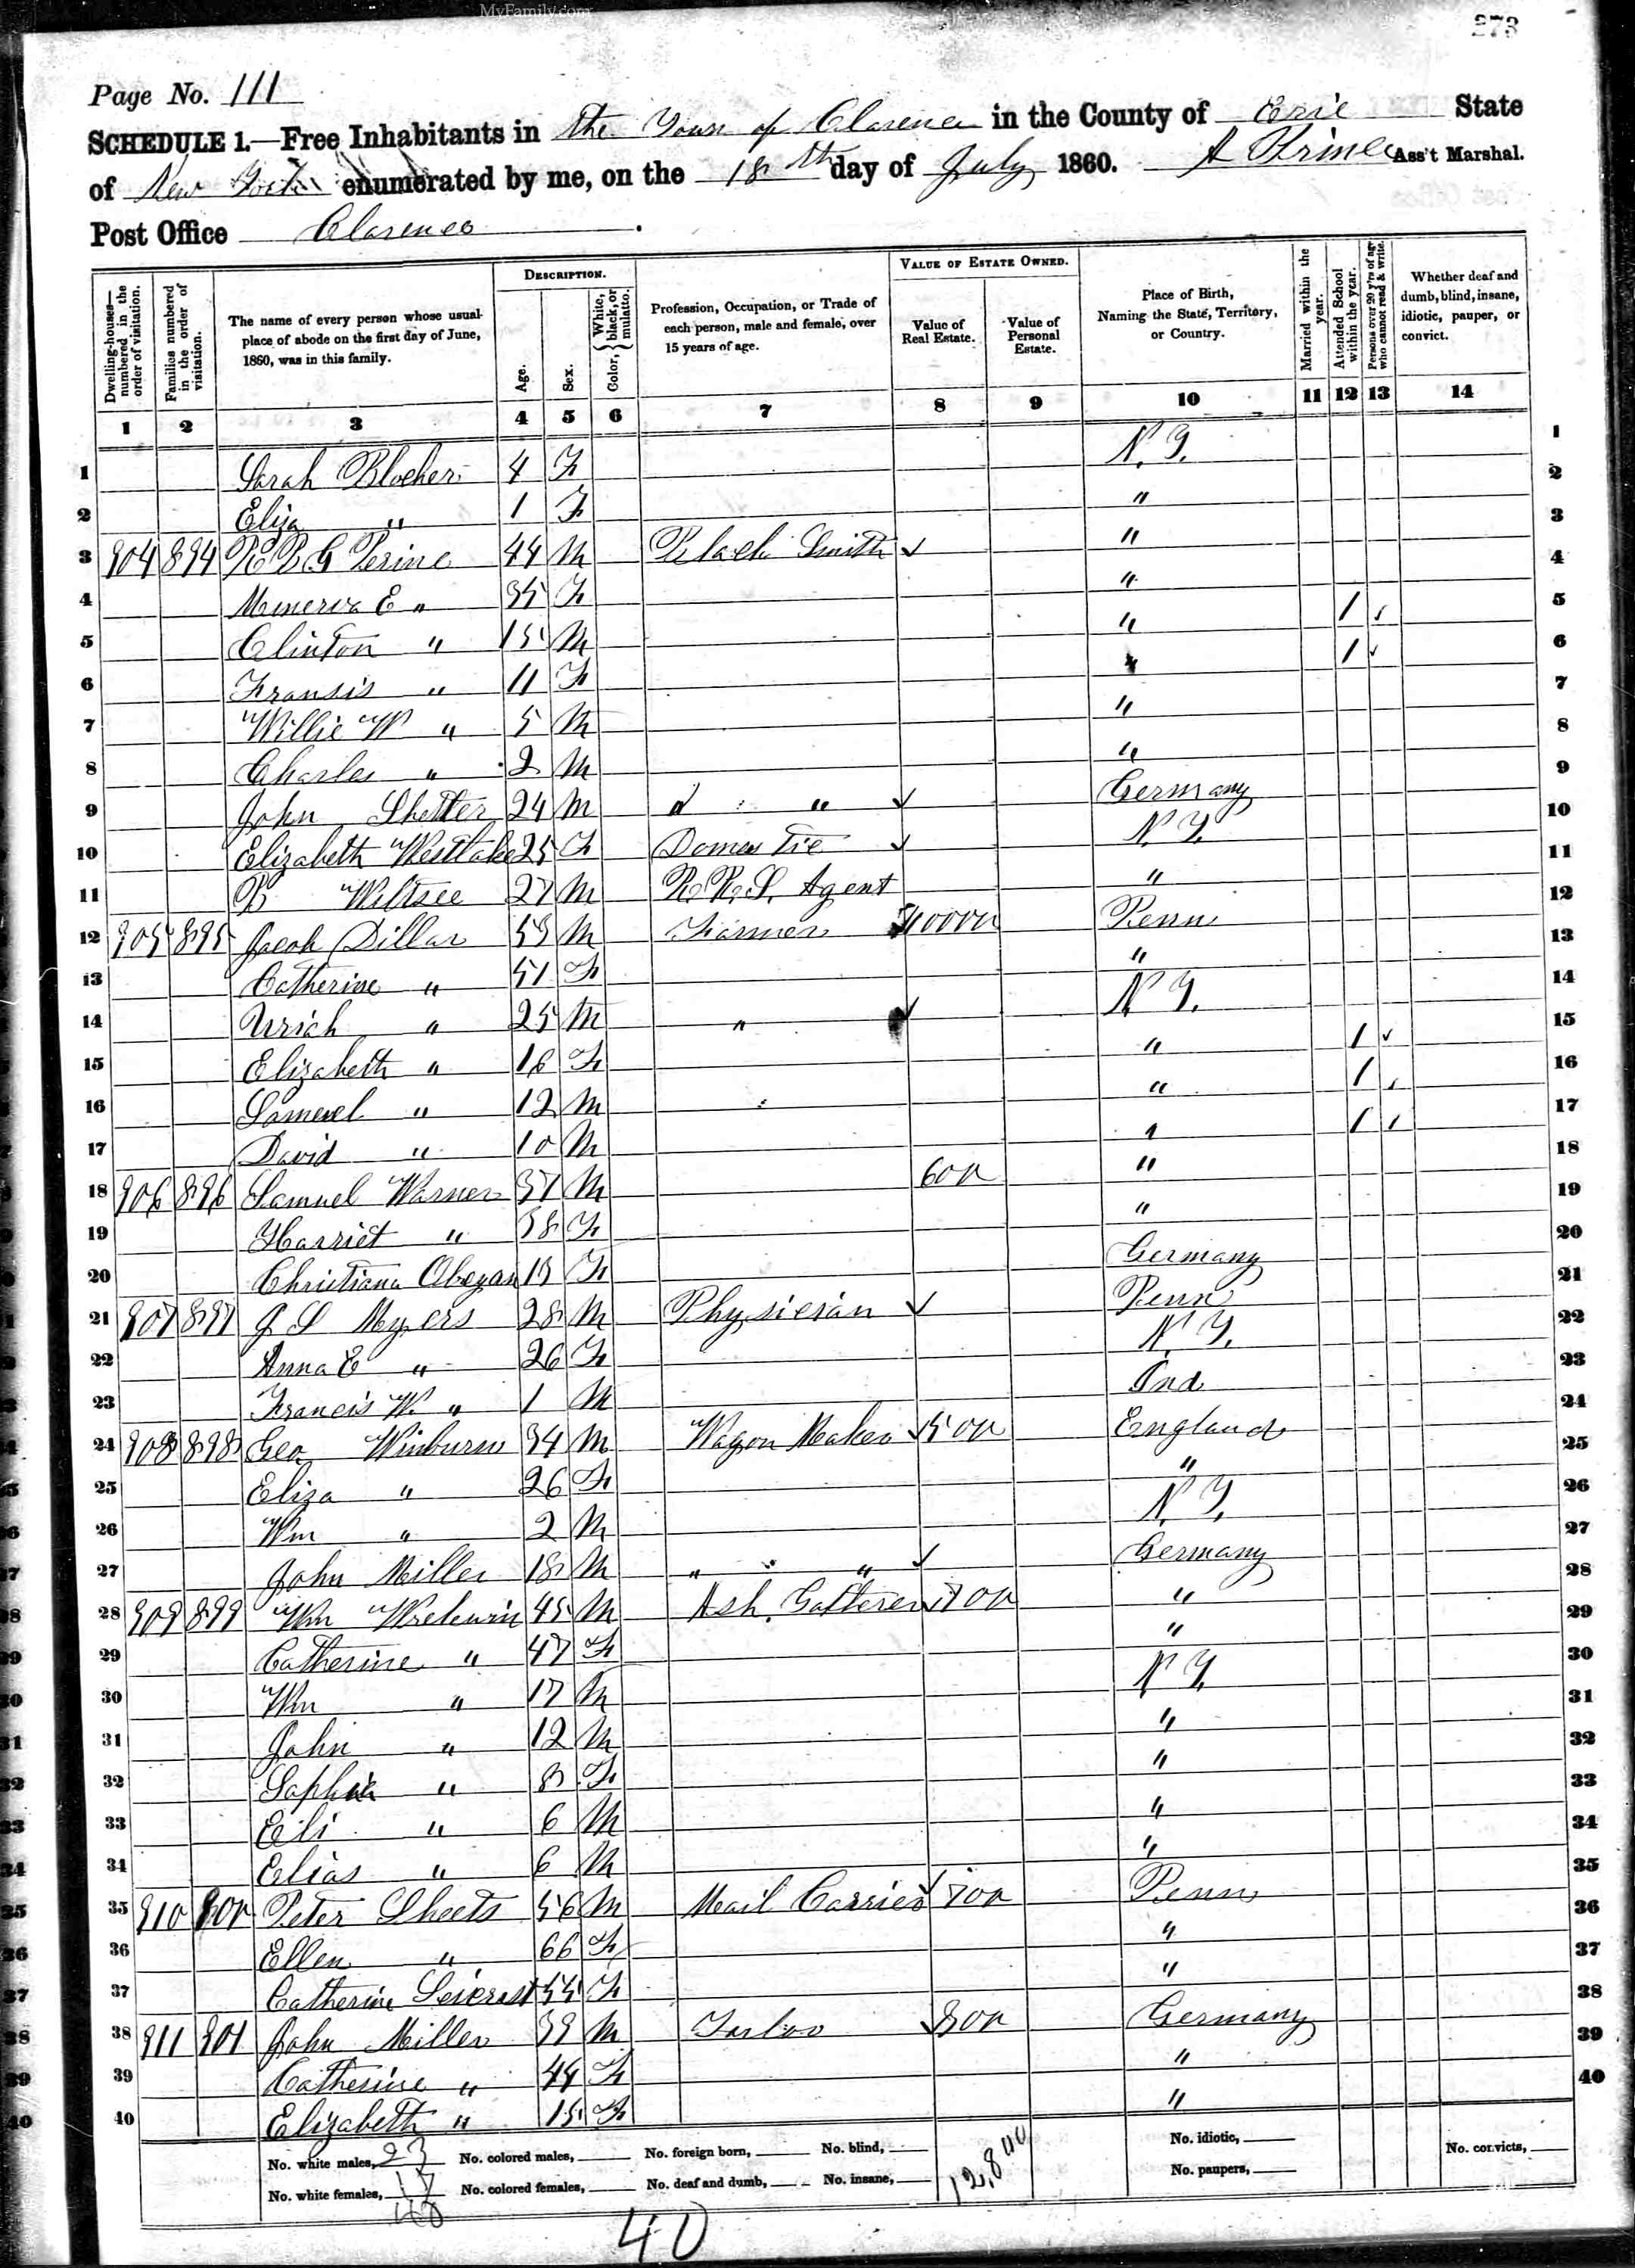 MyFamily.com
273
Page No. 111
SCHEDULE 1.—Free Inhabitants in the Town of Clarence in the County of Erie State
of New York enumerated by me, on the 18th day of July 1860. A Prince Ass't Marshal.
Post Office Clarence.
Dwelling-houses—numbered in the order of visitation.
Families numbered in the order of visitation.
The name of every person whose usual place of abode on the first day of June, 1860, was in this family.
DESCRIPTION.
Age.
Sex.
Color, { White, black, or mulatto.
Profession, Occupation, or Trade of each person, male and female, over 15 years of age.
VALUE OF ESTATE OWNED.
Value of Real Estate.
Value of Personal Estate.
Place of Birth, Naming the State, Territory, or Country.
Married within the year.
Attended School within the year.
Persons over 20 y'rs of age who cannot read & write.
Whether deaf and dumb, blind, insane, idiotic, pauper, or convict.
1 2 3 4 5 6 7 8 9 10 11 12 13 14
1 Sarah Blocher 4 F N. Y. 1
2 Eliza " 1 F " 2
3 904 894 R B G Perine 44 M Black Smith ✓ " 3
4 Minerva E " 35 F " 4
5 Clinton " 15 M " 1 5
6 Fransis " 11 F " 1 6
7 Willie W " 5 M " 7
8 Charles " 2 M " 8
9 John Shetter 24 M " " ✓ Germany 9
10 Elizabeth Westlake 25 F Domestic ✓ N. Y. 10
11 B Wiltsee 27 M R. R. S. Agent " 11
12 905 895 Jacob Dillar 53 M Farmer 10000 Penn 12
13 Catherine " 51 F " 13
14 Uriah " 25 M " ✓ N. Y. 14
15 Elizabeth " 16 F " 1 15
16 Samuel " 12 M " 1 16
17 David " 10 M " 1 17
18 906 896 Samuel Warner 37 M 600 " 18
19 Harriet " 38 F " 19
20 Christiana 13 F Germany 20
21 907 897 J S Myers 28 M Physician ✓ Penn 21
22 Anna E " 26 F N. Y. 22
23 Francis W " 1 M Ind 23
24 908 898 Geo Winburn 34 M Wagon Maker ✓ 500 England 24
25 Eliza " 26 F " 25
26 Wm " 2 M N. Y. 26
27 John Miller 18 M " " ✓ Germany 27
28 909 899 Wm 45 M Ash. Gatherer 700 " 28
29 Catherine " 47 F " 29
30 Wm " 17 M N Y. 30
31 John " 12 M " 31
32 Sophia " 8 F " 32
33 Eli " 6 M " 33
34 Elias " 6 M " 34
35 910 900 Peter Sheets 56 M Mail Carrier ✓ 700 Penn 35
36 Ellen " 66 F " 36
37 Catherine 55 F " 37
38 911 901 John Miller 39 M Tailor ✓ 300 Germany 38
39 Catherine " 44 F " 39
40 Elizabeth " 15 F " 40
No. white males, 23 No. colored males, No. foreign born, No. blind, 12,800 No. idiotic, No. convicts,
No. white females, 17 No. colored females, No. deaf and dumb, No. insane, No. paupers,
40
40